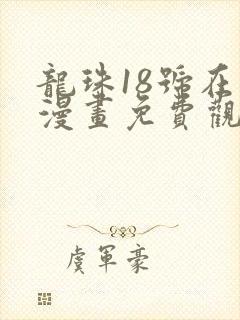 龍珠18號在
漫畫免費觀
虞軍豪